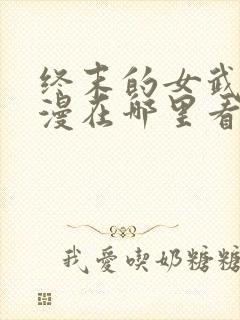 终末的女武
漫在哪里看
我爱喫奶糖糖